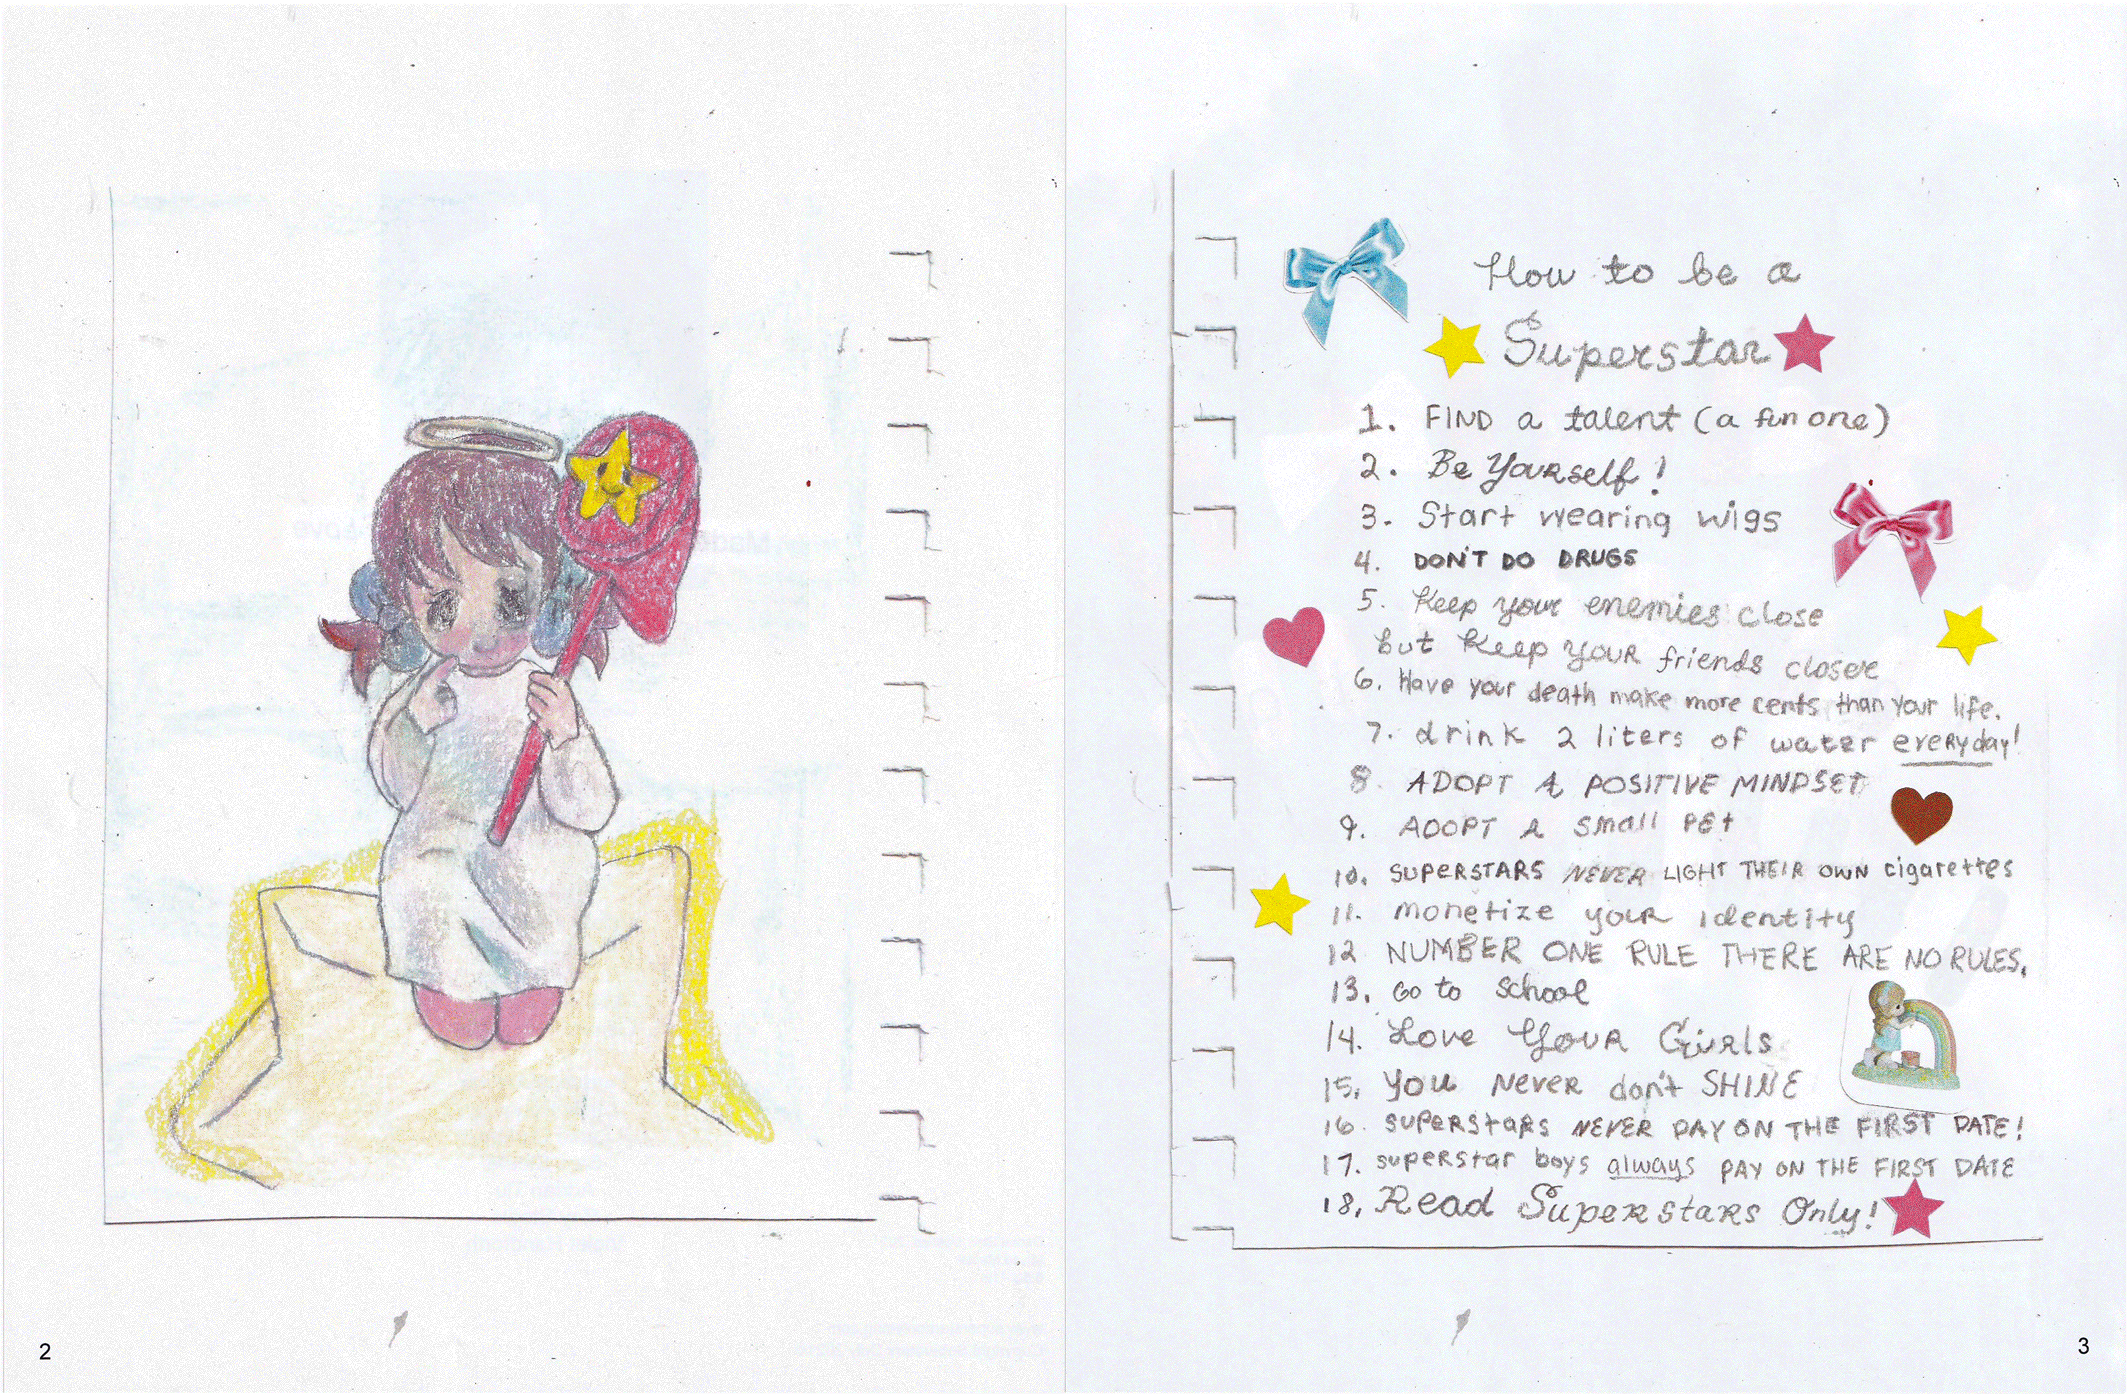 How to be a
Superstar
1. FIND a talent (a fun one)
2. Be Yourself!
3. Start wearing wigs
4. DON'T DO DRUGS
5. Keep your enemies close
but keep your friends closer
6. Have your death make more cents than your life.
7. drink 2 liters of water everyday!
8. ADOPT A POSITIVE MINDSET
9. ADOPT A small PEt
10. SUPERSTARS NEVER LIGHT THEIR OWN cigarettes
11. monetize your identity
12 NUMBER ONE RULE THERE ARE NO RULES.
13. Go to School
14. Love Your Girls
15. You Never don't SHINE
16. SUPERStARS NEVER PAY ON THE FIRST DATE!
17. superstar boys always PAY ON THE FIRST DATE
18. Read Superstars Only!
2
3